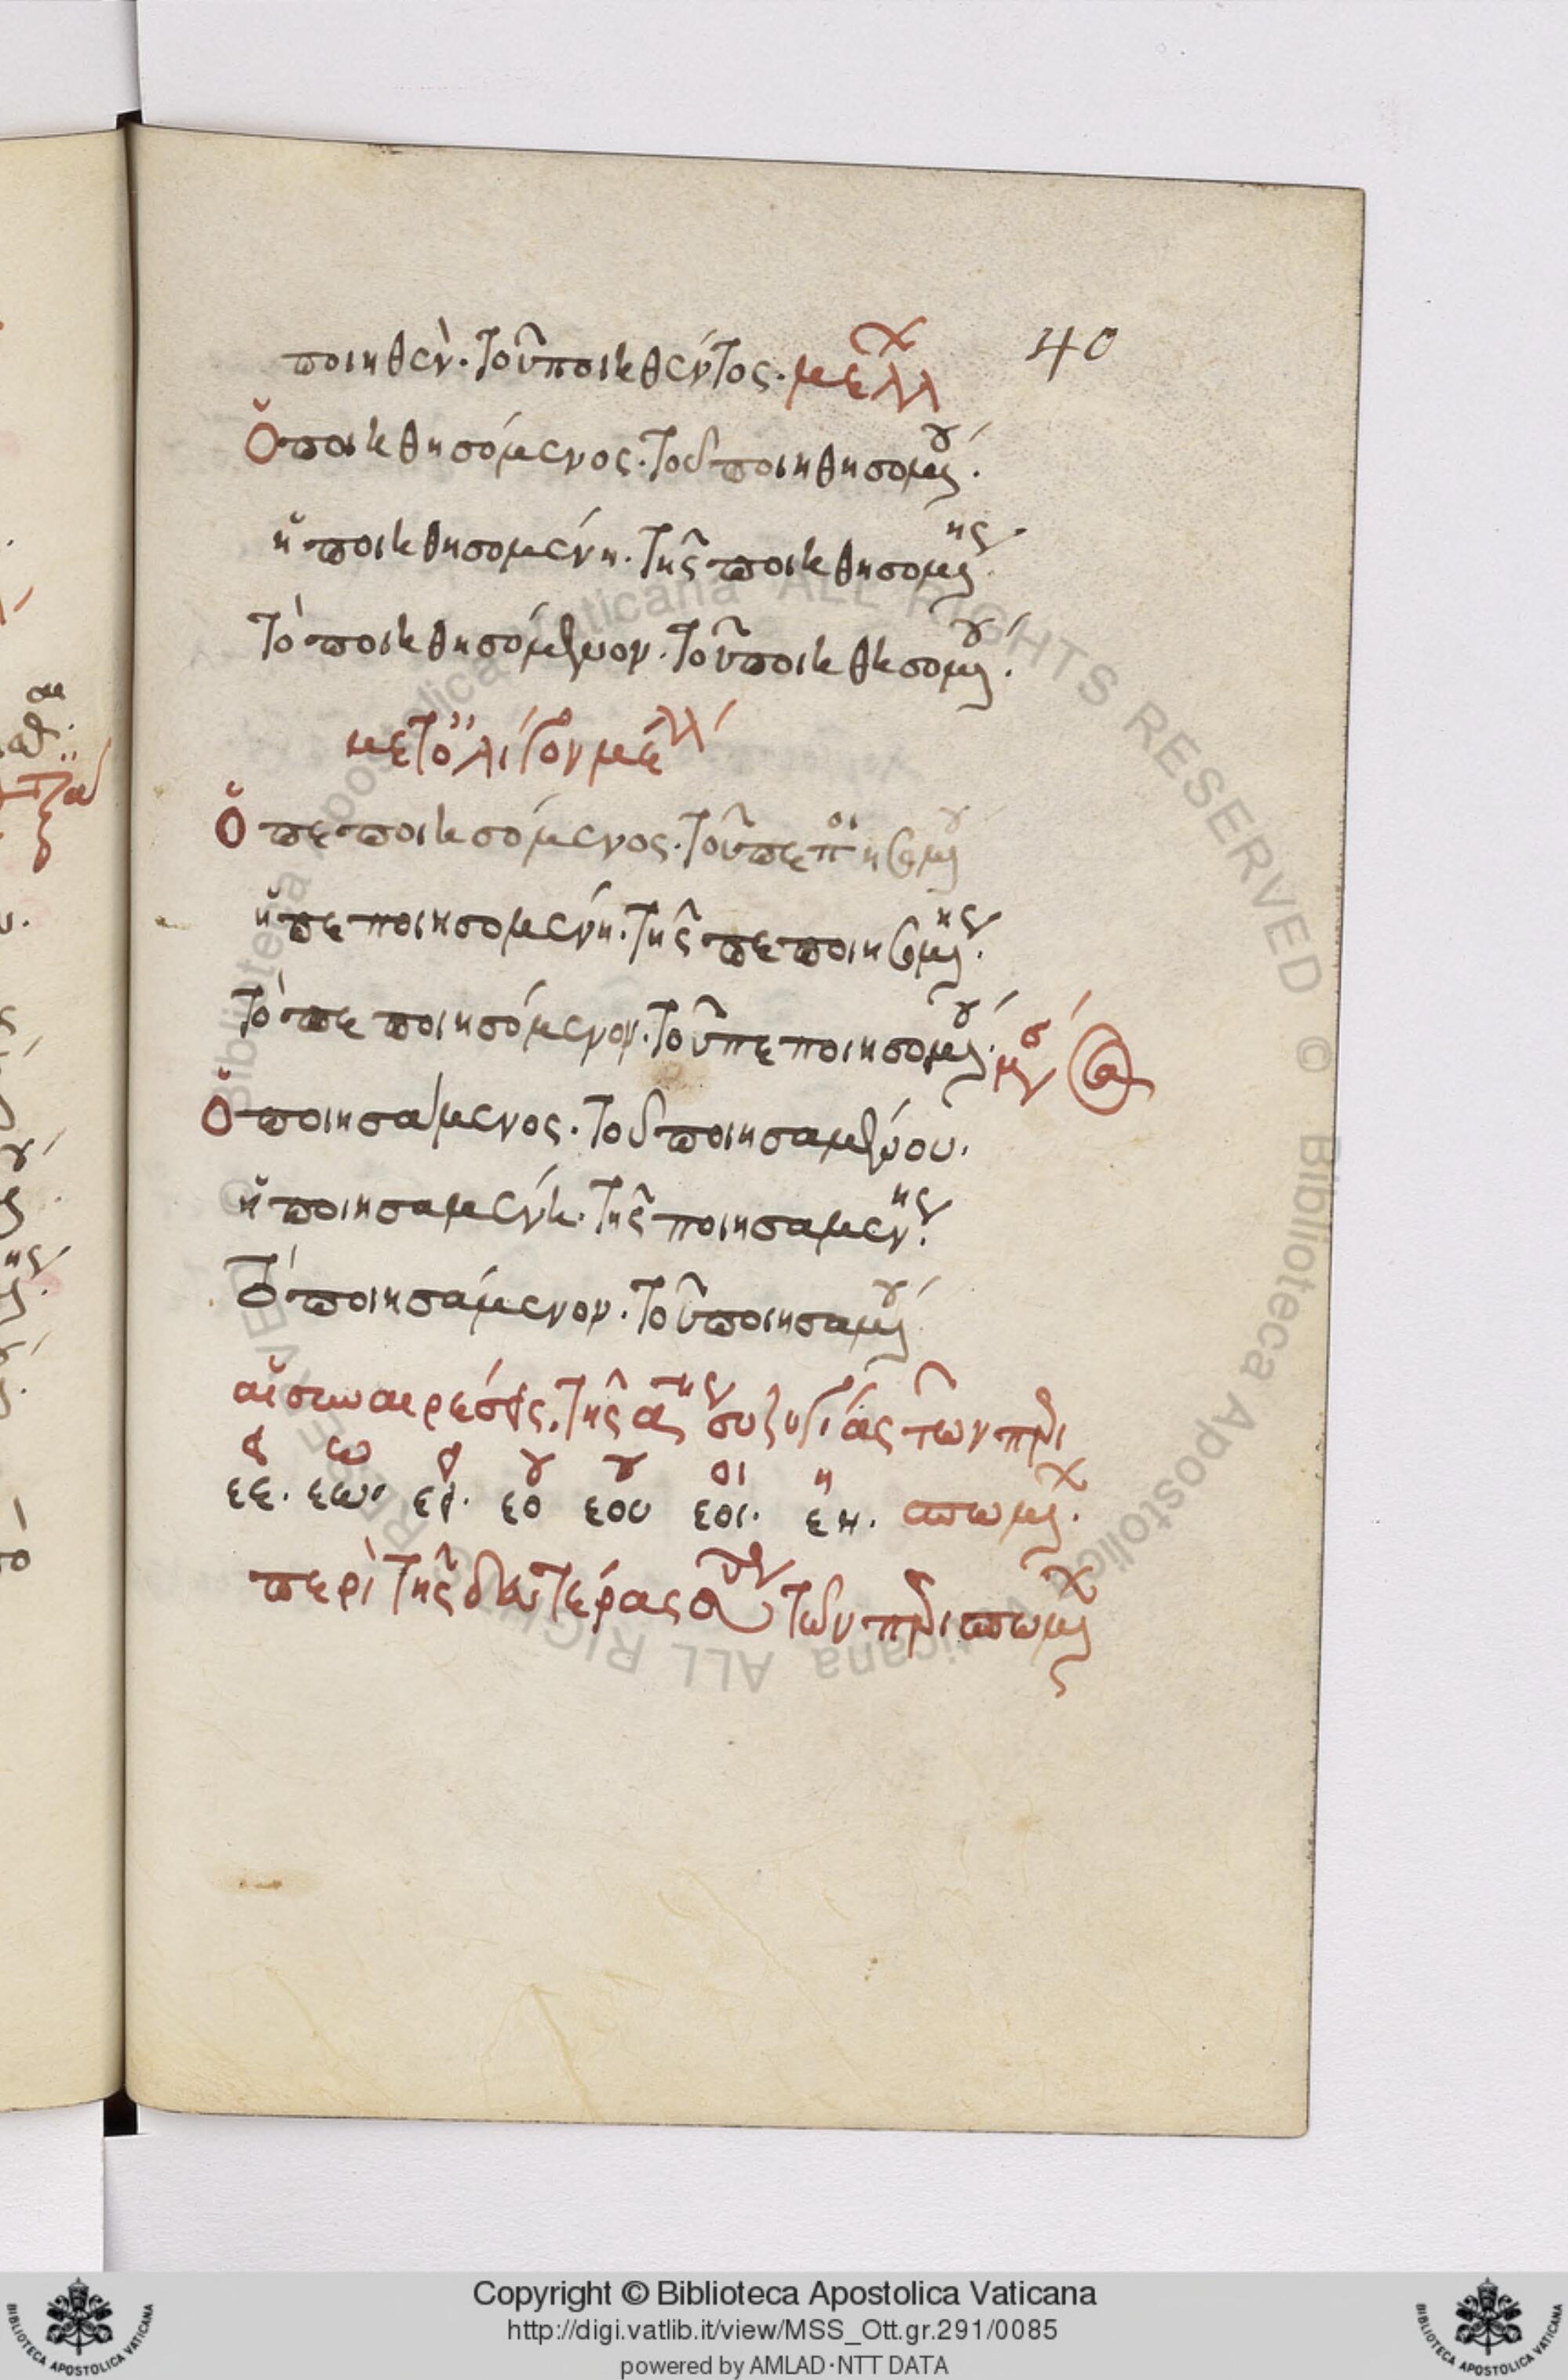 ποιηθὲν· τοῦ ποιηθέντος· μελλ
40
ὁ ποιηθησόμενος· τοῦ ποιηθησομένου·
ἡ ποιηθησομένη· τῆς ποιηθησομένης·
τὸ ποιηθησόμενον· τοῦ ποιηθησομένου·
μετ' ὀλίγον μέλλ
ὁ πεποιησόμενος· τοῦ πεποιησομένου
ἡ πεποιησομένη· τῆς πεποιησομένης·
τὸ πεποιησόμενον· τοῦ πεποιησομένου· μέσ
ὁ ποιησάμενος· τοῦ ποιησαμένου·
ἡ ποιησαμένη· τῆς ποιησαμένης·
τὸ ποιησάμενον· τοῦ ποιησαμένου
αἱ συναιρέσεις τῆς α συζυγίας τῶν περι
ει ω ει ου ου οι η
εε· εω· εει· εο εου εοι· εη· σπωμένων·
περὶ τῆς δευτέρας συζ τῶν περισπωμένων
Copyright © Biblioteca Apostolica Vaticana
http://digi.vatlib.it/view/MSS_Ott.gr.291/0085
powered by AMLAD·NTT DATA